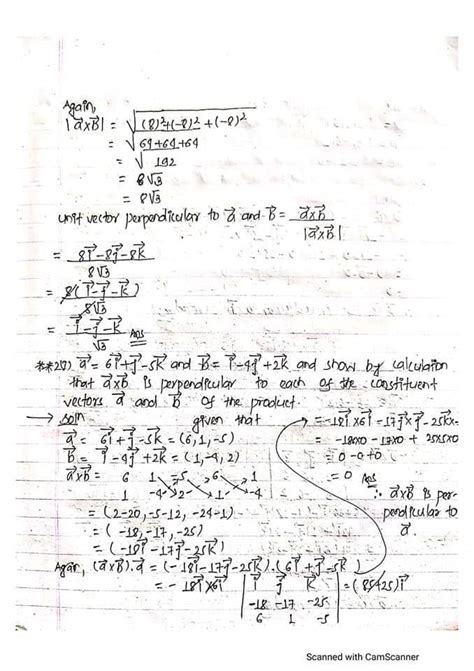 Again,
|a⃗×b⃗| = √(8)²+(-8)²+(-8)²
= √64+64+64
= √192
= 8√3
= 8√3
Unit vector perpendicular to a⃗ and b⃗ = a⃗×b⃗ / |a⃗×b⃗|
= 8i⃗-8j⃗-8k⃗ / 8√3
= 8(i⃗-j⃗-k⃗) / 8√3
= i⃗-j⃗-k⃗ / √3 Ans
a⃗ = 6i⃗+j⃗-5k⃗ and b⃗ = i⃗-4j⃗+2k⃗ and show by calculation
that a⃗×b⃗ is perpendicular to each of the constituent
vectors a⃗ and b⃗ of the product.
→ soln given that
a⃗ = 6i⃗+j⃗-5k⃗ = (6,1,-5)
b⃗ = i⃗-4j⃗+2k⃗ = (1,-4,2)
a⃗×b⃗ = 6 1 -5 6 1
1 -4 2 1 -4
= (2-20, -5-12, -24-1)
= (-18, -17, -25)
= (-18i⃗-17j⃗-25k⃗)
Again, (a⃗×b⃗).a⃗ = (-18i⃗-17j⃗-25k⃗).(6i⃗+j⃗-5k⃗)
= -18i⃗×6i⃗ | i⃗ j⃗ k⃗ | = (85+25)i⃗
-18 -17 -25
6 1 -5
= -18i⃗×6i⃗-17j⃗×j⃗-25k⃗×-
= -18×0-17×0+25×5×0
= 0-0+0
= 0 Ans
∴ a⃗×b⃗ is per-
pendicular to
a⃗.
Scanned with CamScanner